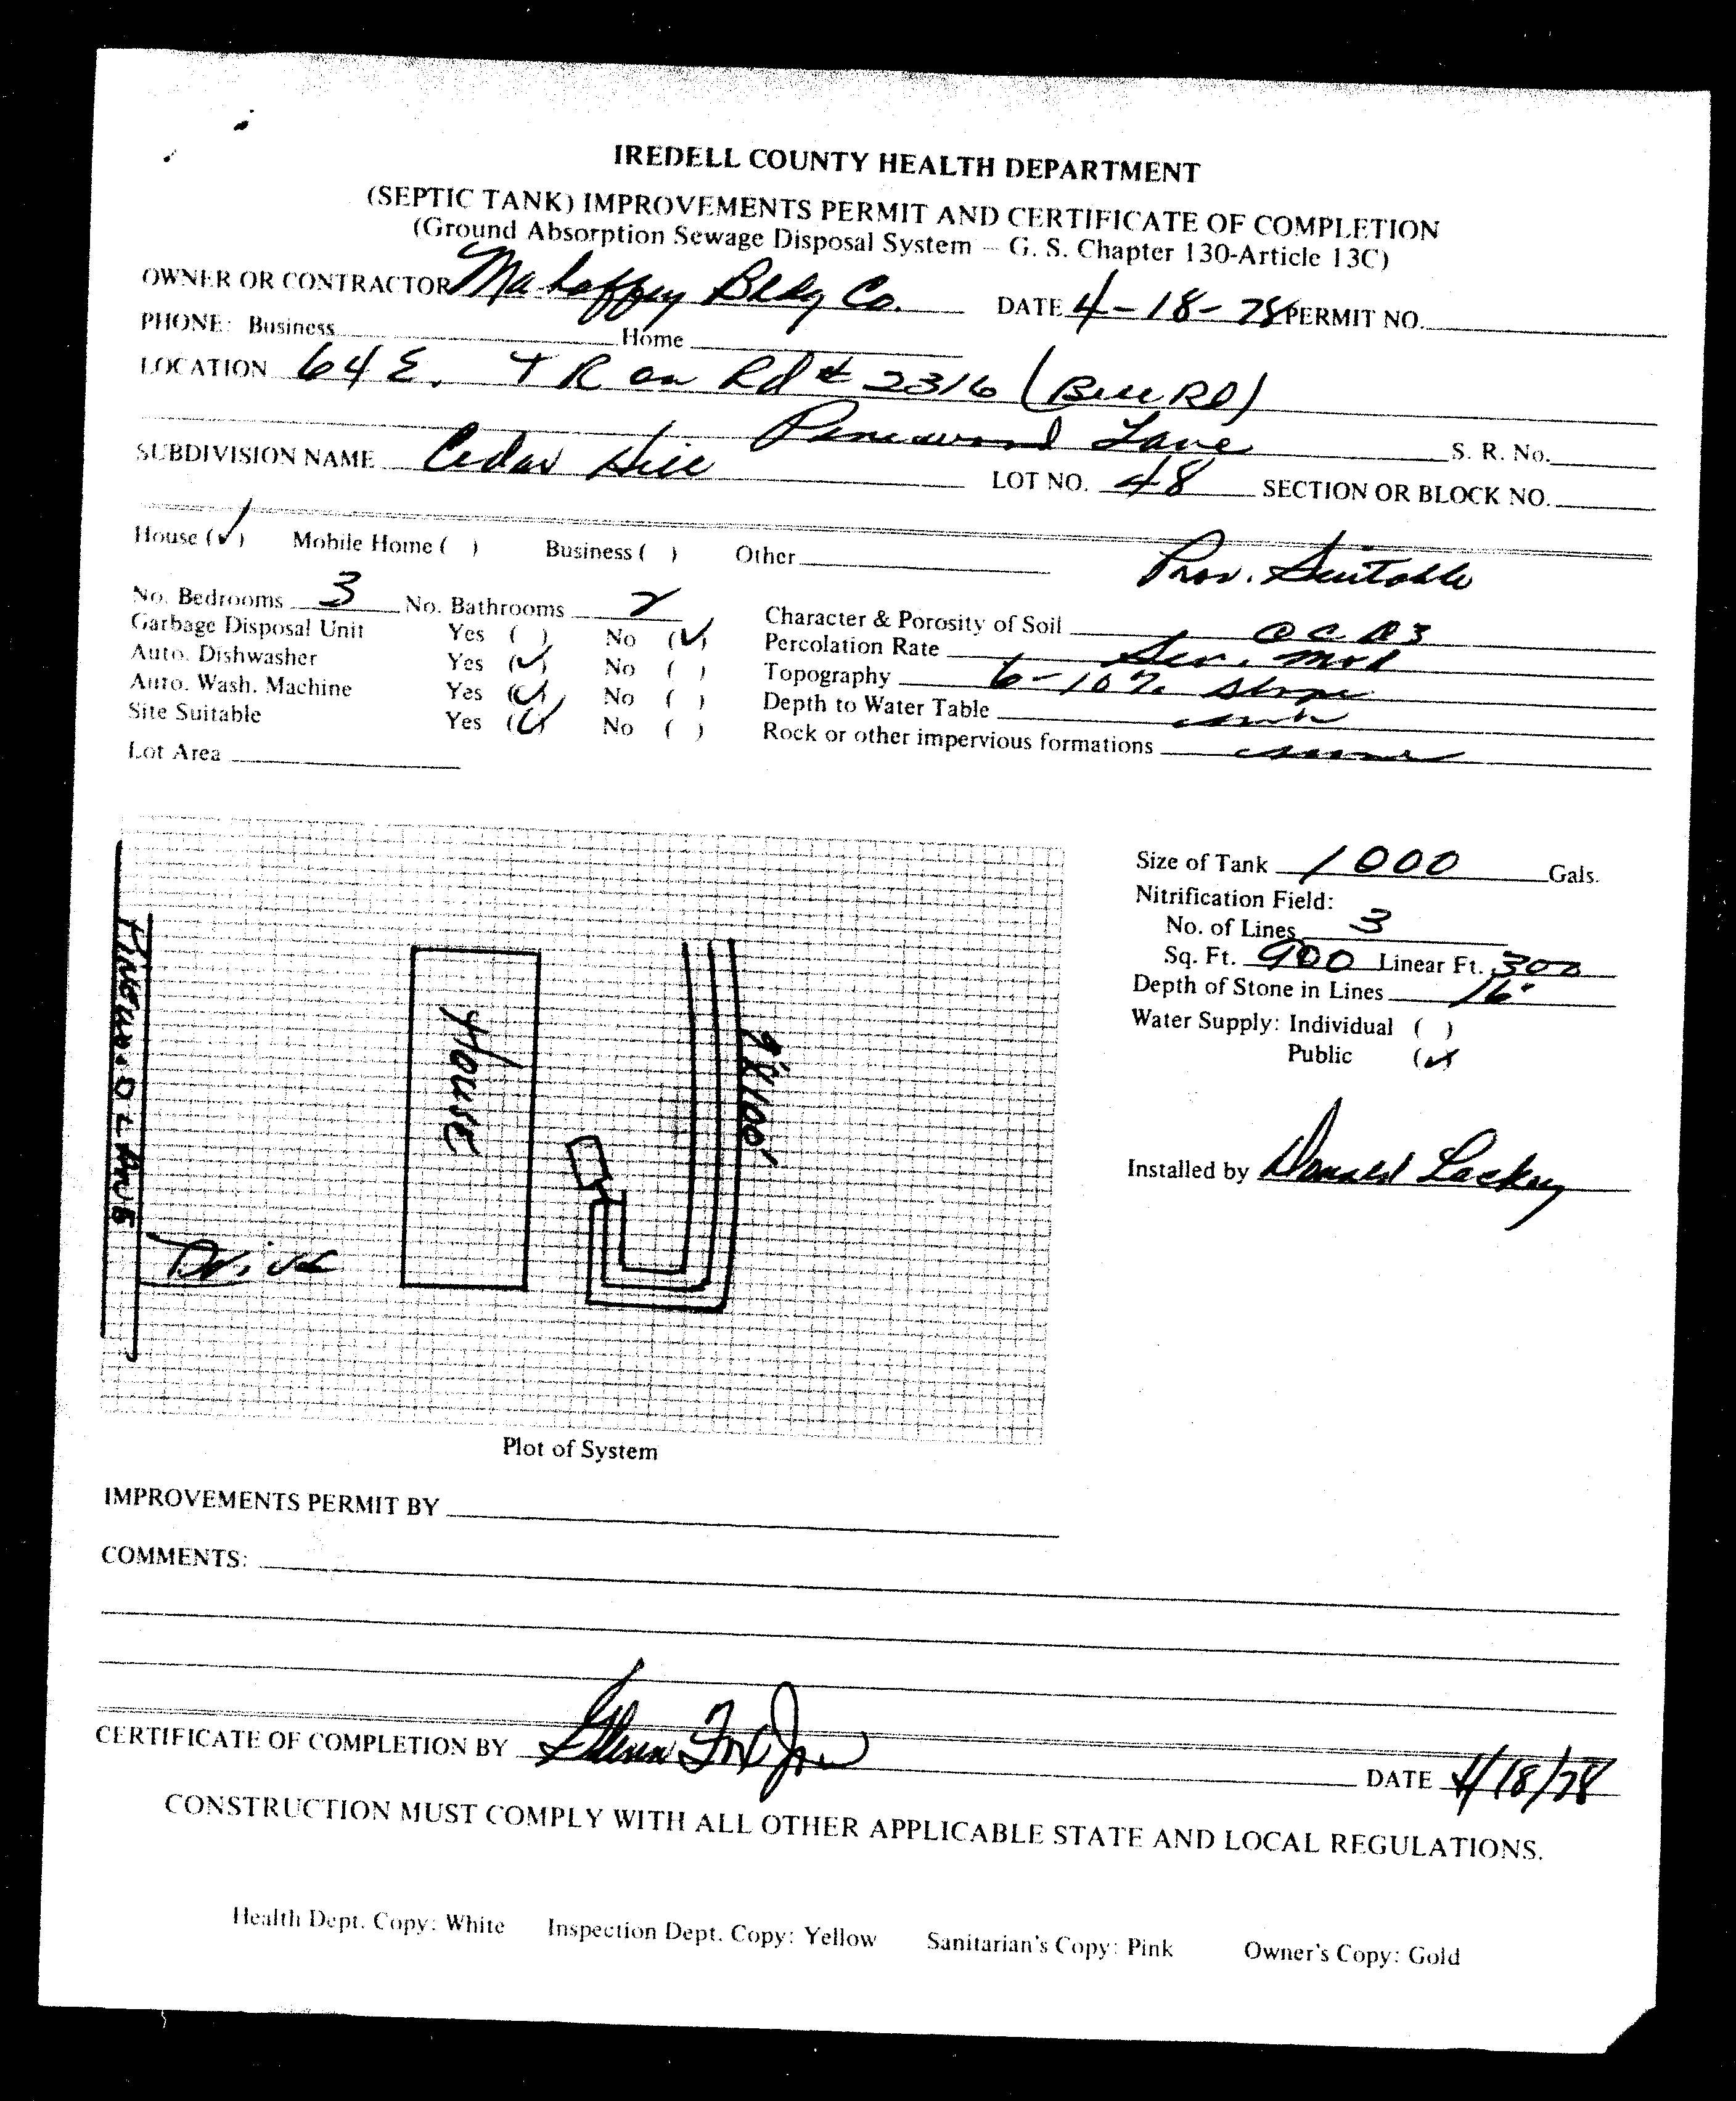 IREDELL COUNTY HEALTH DEPARTMENT
(SEPTIC TANK) IMPROVEMENTS PERMIT AND CERTIFICATE OF COMPLETION
(Ground Absorption Sewage Disposal System – G. S. Chapter 130-Article 13C)
OWNER OR CONTRACTOR Mahaffey Bldg Co. DATE 4-18-78 PERMIT NO.
PHONE: Business Home
LOCATION 64 E. T R on Rd # 2316 (Bell RD)
Pinewood Lane S. R. No.
SUBDIVISION NAME Cedar Hill LOT NO. 48 SECTION OR BLOCK NO.
House (✓) Mobile Home ( ) Business ( ) Other
Prov. Suitable
No. Bedrooms 3 No. Bathrooms 2 Character & Porosity of Soil
Garbage Disposal Unit Yes ( ) No (✓) Percolation Rate
Auto. Dishwasher Yes (✓) No ( ) Topography 6-10% slope
Auto. Wash. Machine Yes (✓) No ( ) Depth to Water Table
Site Suitable Yes (✓) No ( ) Rock or other impervious formations
Lot Area
Size of Tank 1000 Gals.
Nitrification Field:
No. of Lines 3
Sq. Ft. 900 Linear Ft. 300
Depth of Stone in Lines 16"
Water Supply: Individual ( )
Public (✓)
Installed by Donald Lackey
House
Drive
Plot of System
IMPROVEMENTS PERMIT BY
COMMENTS:
CERTIFICATE OF COMPLETION BY Glenn DATE 4/18/78
CONSTRUCTION MUST COMPLY WITH ALL OTHER APPLICABLE STATE AND LOCAL REGULATIONS.
Health Dept. Copy: White Inspection Dept. Copy: Yellow Sanitarian's Copy: Pink Owner's Copy: Gold